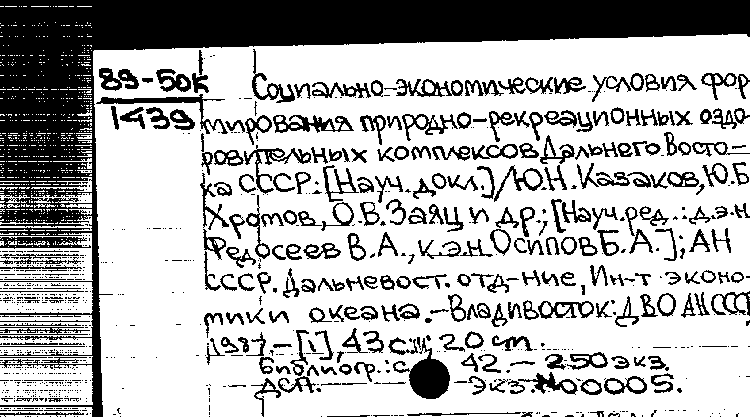 89-50к Социально-экономические условия фор
1439 мирования природно-рекреационных оздо
ровительных комплексов Дальнего Восто-
ка СССР: [Науч. докл.] / Ю.Н. Казаков, Ю.Б
Хромов, О.В. Заяц и др.; [Науч. ред.: д.э.н.
Федосеев В.А., к.э.н. Осипов Б.А.]; АН
СССР. Дальневост. отд-ние, Ин-т эконо-
мики океана. - Владивосток: ДВО АН СССР
1987. - [1], 43 с.; 20 см.
Библиогр.: с. 42. - 250 экз.
ДСП. Экз. № 00005.